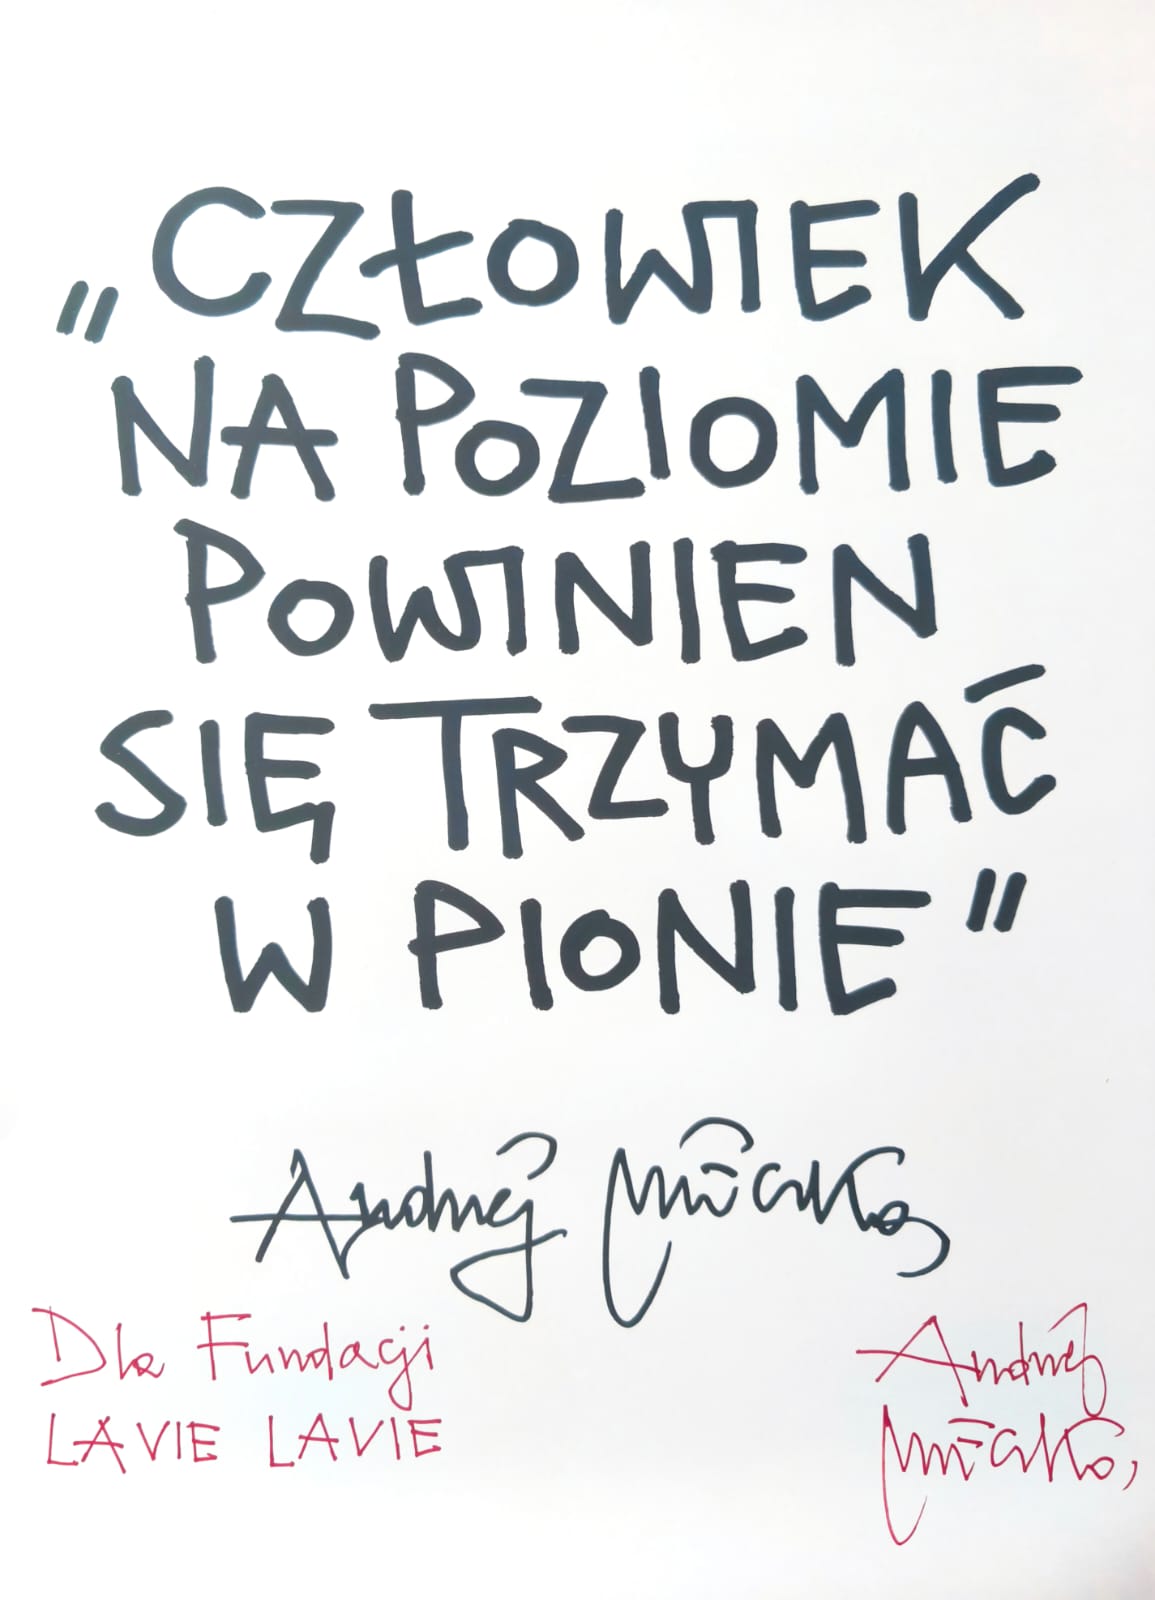 „CZŁOWIEK
NA POZIOMIE
POWINIEN
SIĘ TRZYMAĆ
W PIONIE"
Andrzej Mleczko
Dla Fundacji
LA VIE LA VIE
Andrzej
Mleczko